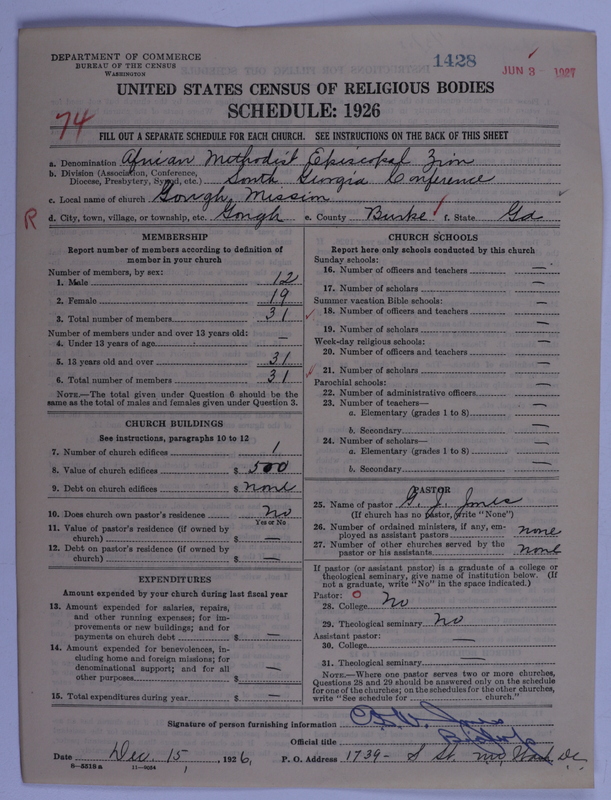 DEPARTMENT OF COMMERCE
BUREAU OF THE CENSUS
WASHINGTON
1428
JUN 3 1927
UNITED STATES CENSUS OF RELIGIOUS BODIES
SCHEDULE: 1926
74
FILL OUT A SEPARATE SCHEDULE FOR EACH CHURCH. SEE INSTRUCTIONS ON THE BACK OF THIS SHEET
a. Denomination African Methodist Episcopal Zion
b. Division (Association, Conference,
Diocese, Presbytery, Synod, etc.) South Georgia Conference
c. Local name of church Gough Mission
R
d. City, town, village, or township, etc. Gough e. County Burke f. State Ga
MEMBERSHIP
Report number of members according to definition of
member in your church
Number of members, by sex:
1. Male 12
2. Female 19
3. Total number of members 31
Number of members under and over 13 years old:
4. Under 13 years of age —
5. 13 years old and over 31
6. Total number of members 31
NOTE.—The total given under Question 6 should be the
same as the total of males and females given under Question 3.
CHURCH BUILDINGS
See instructions, paragraphs 10 to 12
7. Number of church edifices 1
8. Value of church edifices $ 500
9. Debt on church edifices $ none
10. Does church own pastor's residence No
Yes or No
11. Value of pastor's residence (if owned by
church) $ —
12. Debt on pastor's residence (if owned by
church) $ —
EXPENDITURES
Amount expended by your church during last fiscal year
13. Amount expended for salaries, repairs,
and other running expenses; for im-
provements or new buildings; and for
payments on church debt $ —
14. Amount expended for benevolences, in-
cluding home and foreign missions; for
denominational support; and for all
other purposes $ —
15. Total expenditures during year $ —
CHURCH SCHOOLS
Report here only schools conducted by this church
Sunday schools:
16. Number of officers and teachers —
17. Number of scholars —
Summer vacation Bible schools: —
18. Number of officers and teachers —
19. Number of scholars —
Week-day religious schools: —
20. Number of officers and teachers —
21. Number of scholars —
Parochial schools: —
22. Number of administrative officers —
23. Number of teachers—
a. Elementary (grades 1 to 8) —
b. Secondary —
24. Number of scholars—
a. Elementary (grades 1 to 8) —
b. Secondary —
PASTOR
25. Name of pastor G. J. Jones
(If church has no pastor, write "None")
26. Number of ordained ministers, if any, em-
ployed as assistant pastors none
27. Number of other churches served by the
pastor or his assistants none
If pastor (or assistant pastor) is a graduate of a college or
theological seminary, give name of institution below. (If
not a graduate, write "No" in the space indicated.)
Pastor:
28. College No
29. Theological seminary No
Assistant pastor:
30. College —
31. Theological seminary —
NOTE.—Where one pastor serves two or more churches,
Questions 28 and 29 should be answered only on the schedule
for one of the churches; on the schedules for the other churches,
write "See schedule for church."
Signature of person furnishing information
Official title Bishop
Date Dec. 15, 1926, P. O. Address 1739- S St. NW, Wash DC.
8-5518a 11-9084